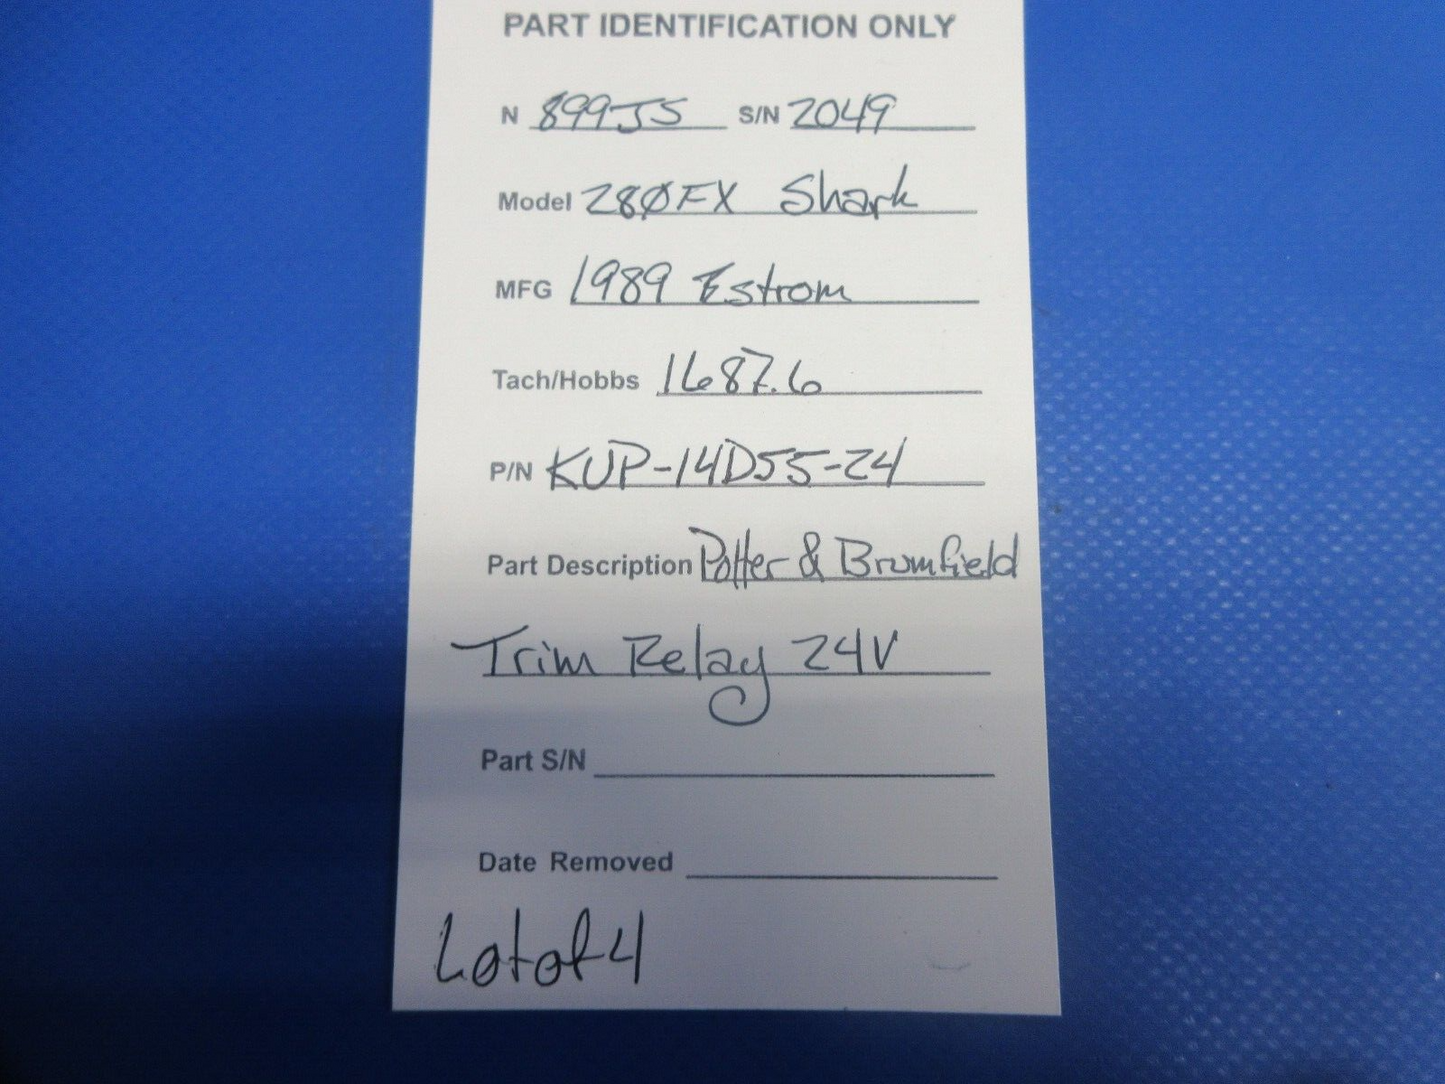 PART IDENTIFICATION ONLY
N 899JS S/N 2049
Model 280FX Shark
MFG 1989 Estrom
Tach/Hobbs 1687.6
P/N KUP-14D55-24
Part Description Potter & Brumfield
Trim Relay 24V
Part S/N
Date Removed
Lot of 4